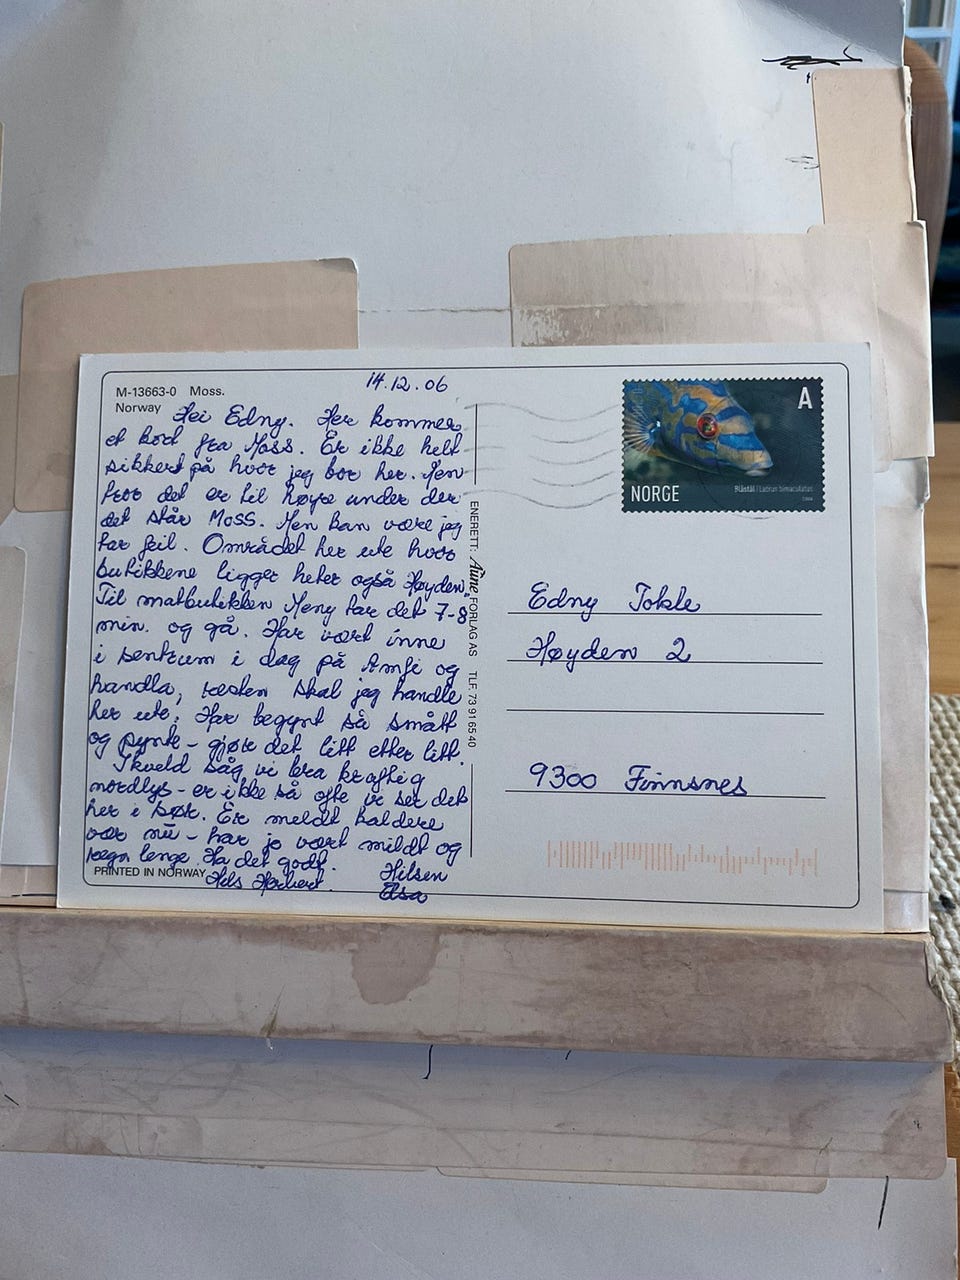 14.12.06
M-13663-0 Moss.
Norway
Hei Edny. Her kommer
et kort fra Moss. Er ikke helt
sikkert på hvor jeg bor her. Men
tror det er til høyre under der
det står Moss. Men kan være jeg
tar feil. Området her ute hvor
butikkene ligger heter også Høyden.
Til matbutikken Meny tar det 7-8
min. og gå. Har vært inne
i sentrum i dag på Amfi og
handla, resten skal jeg handle
her ute. Har begynt så smått
og pynte - gjør det litt etter litt.
Ikveld såg vi bra kraftig
nordlys - er ikke så ofte vi ser det
her i sør. Er meldt kaldere
vær nü - har jo vært mildt og
regn lenge. Ha det godt.
Hilsen
Hils Herbert.
Åsa
PRINTED IN NORWAY
ENERETT: Aune FORLAG AS TLF. 73 91 65 40
A
NORGE
Blåstål | Labrus bimaculatus
Edny Tokle
Høyden 2
9300 Finnsnes